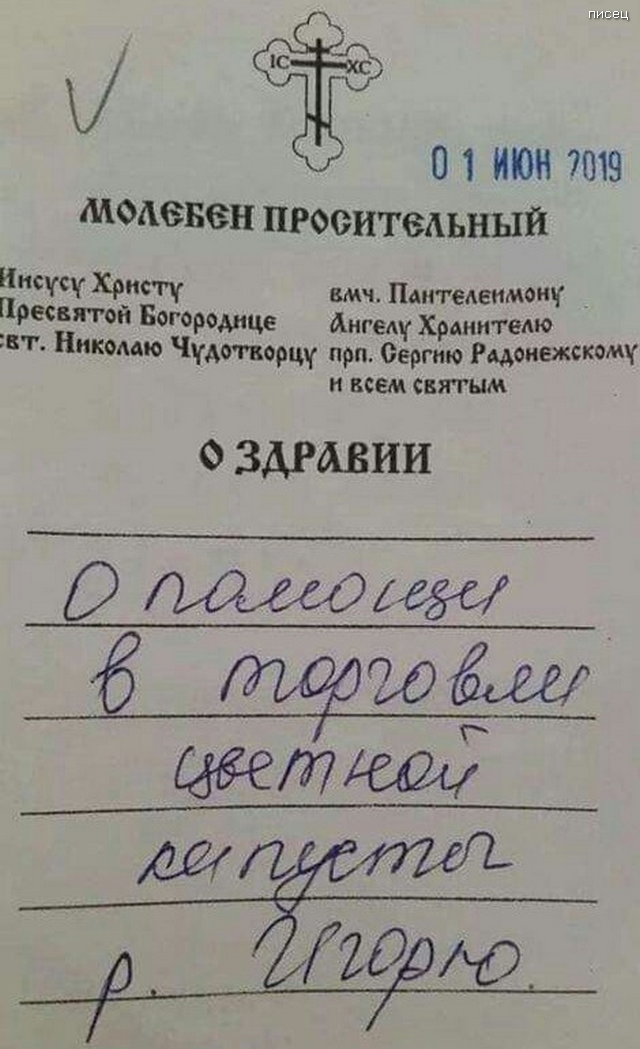 писец
IC XC
01 ИЮН 2019
МОЛЕБЕН ПРОСИТЕЛЬНЫЙ
Иисусу Христу
Пресвятой Богородице
свт. Николаю Чудотворцу
вмч. Пантелеимону
Ангелу Хранителю
прп. Сергию Радонежскому
и всем святым
О ЗДРАВИИ
О помощи
в торговли
цветной
капусты
р. Игорю.